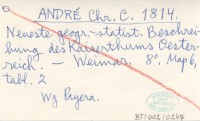 ANDRÉ Chr. C. 1814.
Neueste geogr.-statist. Beschrei-
bung des Kaiserthums Oester-
reich. — Weimar. 8º. Map 6,
tabl. 2
Wz Pryera.
BT1002/0247